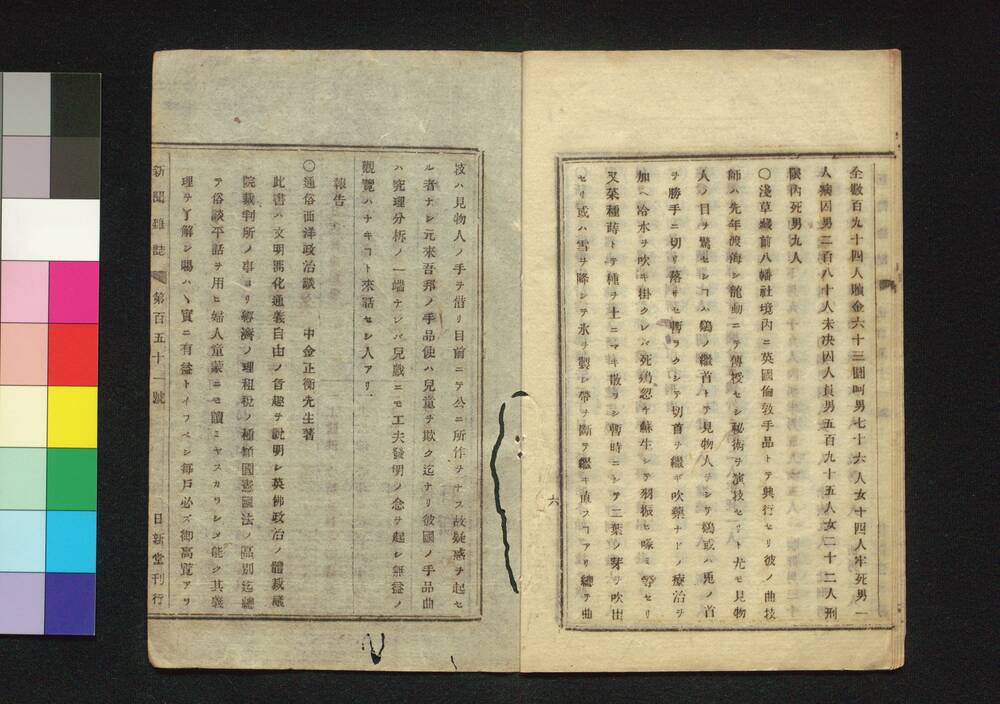 全數百九十四人贖金六十三圓呵男七十六人女十四人牢死男一
人病囚男二百八十人未决囚人員男五百九十五人女二十二人刑
限內死男九人
〇淺草藏前八幡社境內ニ英國倫敦手品トテ興行セリ彼ノ曲技
師ハ先年渡海シ能動ニテ傳授セシ秘術ヲ演技セリト尤モ見物
人ノ目ヲ驚セシコハ鷄ノ繼首トテ見物人ヲシテ鷄或ハ兎ノ首
ヲ勝手ニ切リ落サセ暫ラクシテ切首ヲ繼ギ吹藥ナドノ療治ヲ
加ヘ冷水ヲ吹キ掛クレバ死鷄忽チ蘇生シテ羽振ヒ啄ミ等セリ
又菜種蒔トテ種ヲ土ニマキ散ラシ暫時ニシテ二葉ノ芽ヲ吹出
セリ或ハ雪ヲ降シテ氷ヲ製シ帶ヲ斷テ繼ギ直スコアリ總テ曲
六
技ハ見物人ノ手ヲ借リ目前ニテ公ニ所作ヲナス故疑惑ヲ起セ
ル者ナシ元來吾邦ノ手品使ハ兒童ヲ欺ク迄ナリ彼國ノ手品曲
ハ究理分析ノ一端ナレバ兒戱ニモ工夫發明ノ念ヲ起シ無益ノ
觀覽ハナキコト來話セシ人アリ
報告
〇通俗西洋政治談 中金正衡先生著
此書ハ文明開化通義自由ノ旨趣ヲ說明シ英佛政治ノ體裁議
院裁判所ノ事ヨリ經濟ノ理租稅ノ種類國憲國法ノ區別迄總
テ俗談平話ヲ用ヒ婦人童蒙ニモ讀ミヤスカラシメ能ク其義
理ヲ了解シ賜ハヽ實ニ有益トイフベシ每戶必ズ御高覽アリ
新聞雜誌 第百五十一號 日新堂刊行